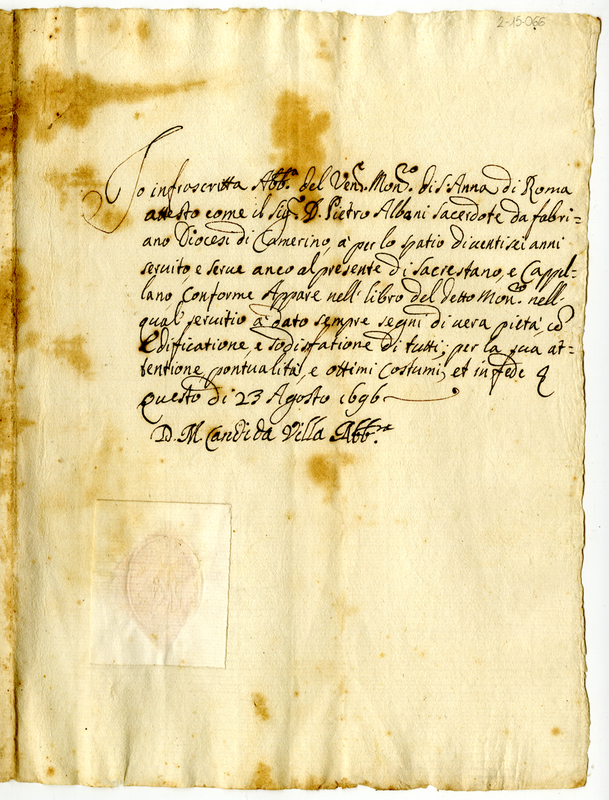 2-15-066
Io infrascritta Abb.ª del Ven. Mon.º di s. Anna di Roma
attesto come il sig.r D. Pietro Albani sacerdote da fabri=
ano Diocesi di Camerino, à per lo spatio di ventisei anni
servito e serve anco al presente di sacrestano, e Cappel=
lano conforme Appare nell' libro del detto Mon.º nell'
qual servitio à dato sempre segni di vera pietà, cō
Edificatione, e sodisfatione di tutti; per la sua at=
tentione, pontualità, e ottimi Costumi, et in fede
questo dì 23 Agosto 1696
D. M. Candida Villa Abb.ra